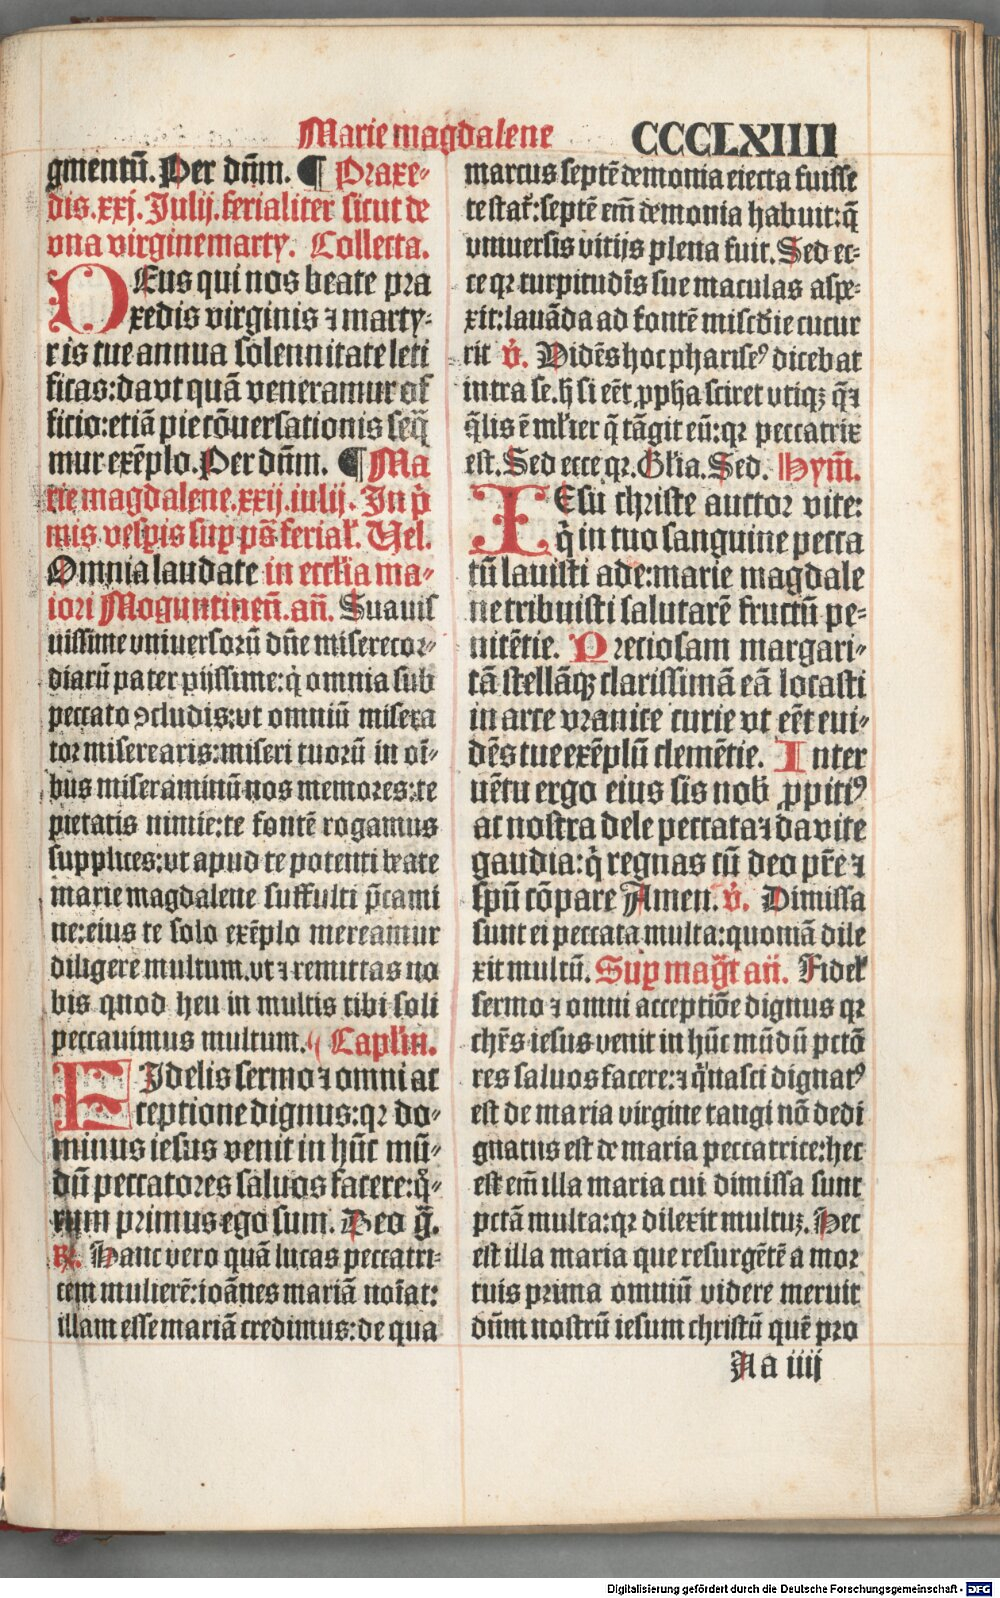 Marie magdalene CCCLXIIII
gmentū. Per dn̄m. ¶ Praxe⸗
dis. xxj. Iulij. ferialiter sicut de
vna virgine marty. Collecta.
DEus qui nos beate pra
xedis virginis ⁊ marty⸗
ris tue annua solennitate leti
ficas: da vt quā veneramur of
ficio: etiā pie cōuersationis seq̄
mur exēplo. Per dn̄m. ¶ Ma
rie magdalene. xxij. iulij. In p̄
mis vesꝑis suꝑ ps̄ ferial. Vel.
Omnia laudate in eccl̓ia ma⸗
iori Moguntineñ. añ. Suauis
uissime vniuersorū dn̄e miserecor⸗
diarū pater pijssime: q̇ omnia sub
peccato ꝯcludis: vt omniū misera
tor misereris: miseri tuorū in oī⸗
bus miseraminū nos memores: te
pietatis nimie: te fontē rogamus
supplices: vt apud te potenti beate
marie magdalene suffulti p̄cami
ne: eius te solo exēplo mereamur
diligere multum. vt ⁊ remittas no
bis quod heu in multis tibi soli
peccauimus multum. Capl̓m.
FIdelis sermo ⁊ omni ac
ceptione dignus: qꝛ do⸗
minus iesus venit in hūc mū⸗
dū peccatores saluos facere: q̇⸗
rum primus ego sum. Deo g̃.
℟. Hanc vero quā lucas peccatri⸗
cem mulierē: ioānes mariā noīat:
illam esse mariā credimus: de qua
marcus septē demonia eiecta fuisse
testat᷑: septē em̄ demonia habuit: q̄
vniuersis vitijs plena fuit. Sed ec⸗
ce qꝛ turpitudīs sue maculas aspe⸗
xit: lauāda ad fontē misc̄die cucur
rit ℣. Vidēs hoc phariseꝰ dicebat
intra se. h̄ si eēt ꝓpha sciret vtiqꝫ q̄ ⁊
q̄lis ē ml̓ier q̄ tāgit eū: qꝛ peccatrix
est. Sed ecce qꝛ. Gl̓ia. Sed. Hym̄.
IEsu christe auctor vite:
q̇ in tuo sanguine pecca
tū lauisti ade: marie magdale
ne tribuisti salutarē fructū pe⸗
nitētie. Pretiosam margari⸗
tā stellāqꝫ clarissimā eā locasti
in arce vranice curie vt eēt eui⸗
dēs tue exēplū clemētie. Inter
uētu ergo eius sis nob̓ ꝓpitiꝰ
at nostra dele peccata ⁊ da vite
gaudia: q̇ regnas cū deo pr̄e ⁊
spū cōpare Amen. ℣. Dimissa
sunt ei peccata multa: quoniā dile
xit multū. Suꝑ mag̃t añ. Fidel̓
sermo ⁊ omni acceptiōe dignus qꝛ
chr̄s iesus venit in hūc mūdū pctō
res saluos facere: ⁊ q̇ nasci dignatꝰ
est de maria virgine tangi nō dedi
gnatus est de maria peccatrice: hec
est em̄ illa maria cui dimissa sunt
pctā multa: qꝛ dilexit multuꝫ. Hec
est illa maria que resurgētē a mor
tuis prima omniū videre meruit
dn̄m nostrū iesum christū quē pro
Aa iiij
Digitalisierung gefördert durch die Deutsche Forschungsgemeinschaft - DFG